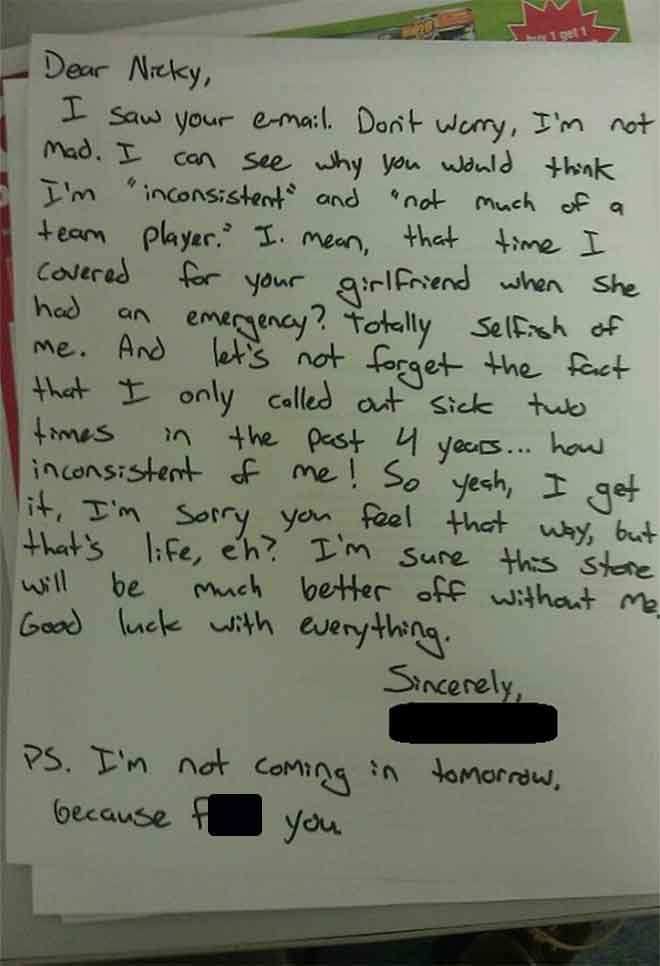 buy 1 get 1
Dear Nicky,
I saw your e-mail. Don't worry, I'm not
mad. I can see why you would think
I'm "inconsistent" and "not much of a
team player." I. mean, that time I
covered for your girlfriend when she
had an emergency? Totally selfish of
me. And let's not forget the fact
that I only called out sick two
times in the past 4 years... how
inconsistent of me! So yeah, I get
it, I'm sorry you feel that way, but
that's life, eh? I'm sure this store
will be much better off without me.
Good luck with everything.
Sincerely,
PS. I'm not coming in tomorrow,
because f you